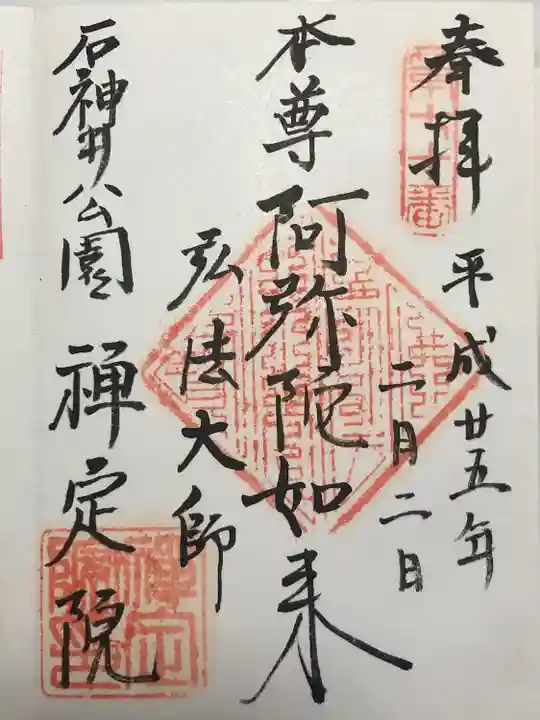 奉拝
平成廿五年
二月二日
本尊 阿弥陀如来
弘法大師
石神井公園 禅定院